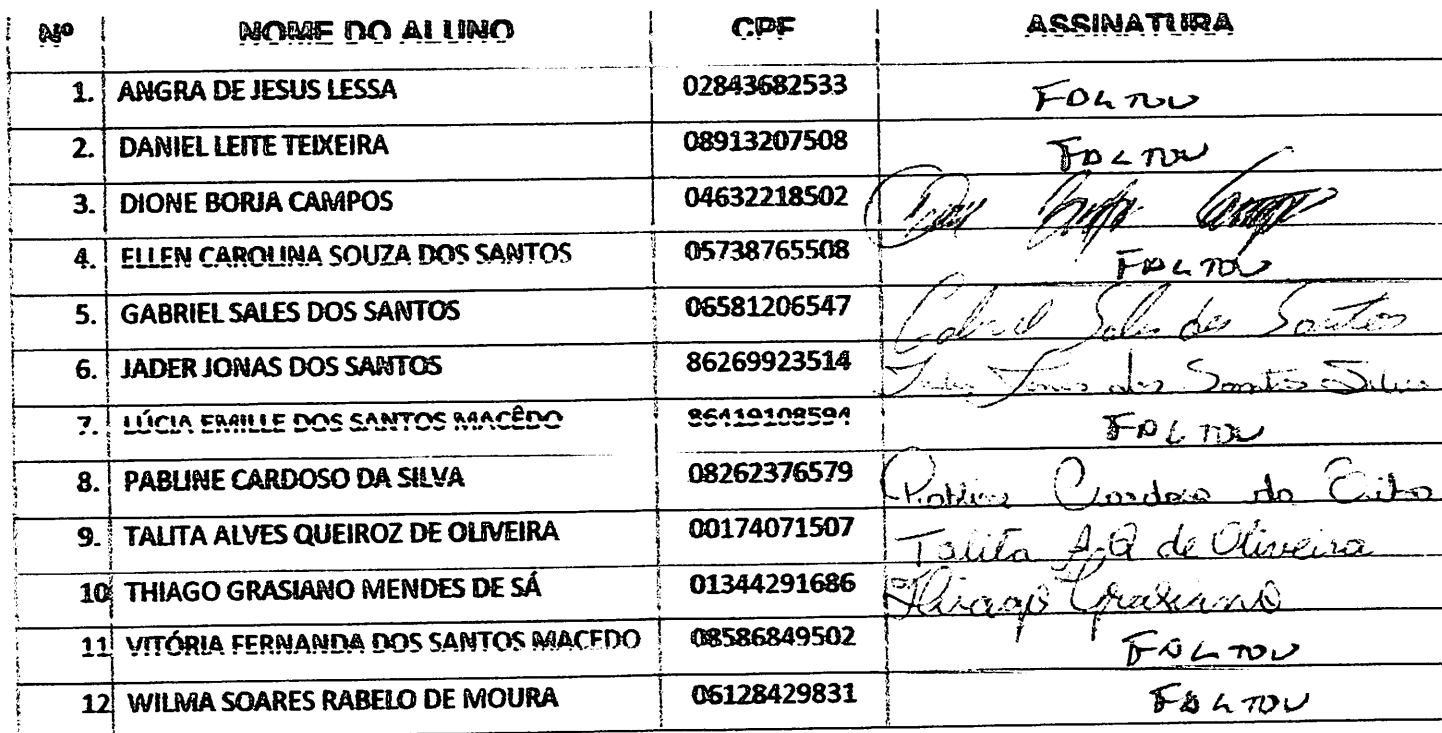 Nº NOME DO ALUNO CPF ASSINATURA
1. ANGRA DE JESUS LESSA 02843682533 FALTOU
2. DANIEL LEITE TEIXEIRA 08913207508 FALTOU
3. DIONE BORJA CAMPOS 04632218502
4. ELLEN CAROLINA SOUZA DOS SANTOS 05738765508 FALTOU
5. GABRIEL SALES DOS SANTOS 06581206547 Gabriel Sales dos Santos
6. JADER JONAS DOS SANTOS 86269923514 Jader Jonas dos Santos Silva
7. LÚCIA EMILLE DOS SANTOS MACÊDO 86419108594 FALTOU
8. PABLINE CARDOSO DA SILVA 08262376579 Pabline Cardoso da
9. TALITA ALVES QUEIROZ DE OLIVEIRA 00174071507 Talita A. Q de Oliveira
10 THIAGO GRASIANO MENDES DE SÁ 01344291686 Thiago Grasiano
11 VITÓRIA FERNANDA DOS SANTOS MACEDO 08586849502 FALTOU
12 WILMA SOARES RABELO DE MOURA 06128429831 FALTOU